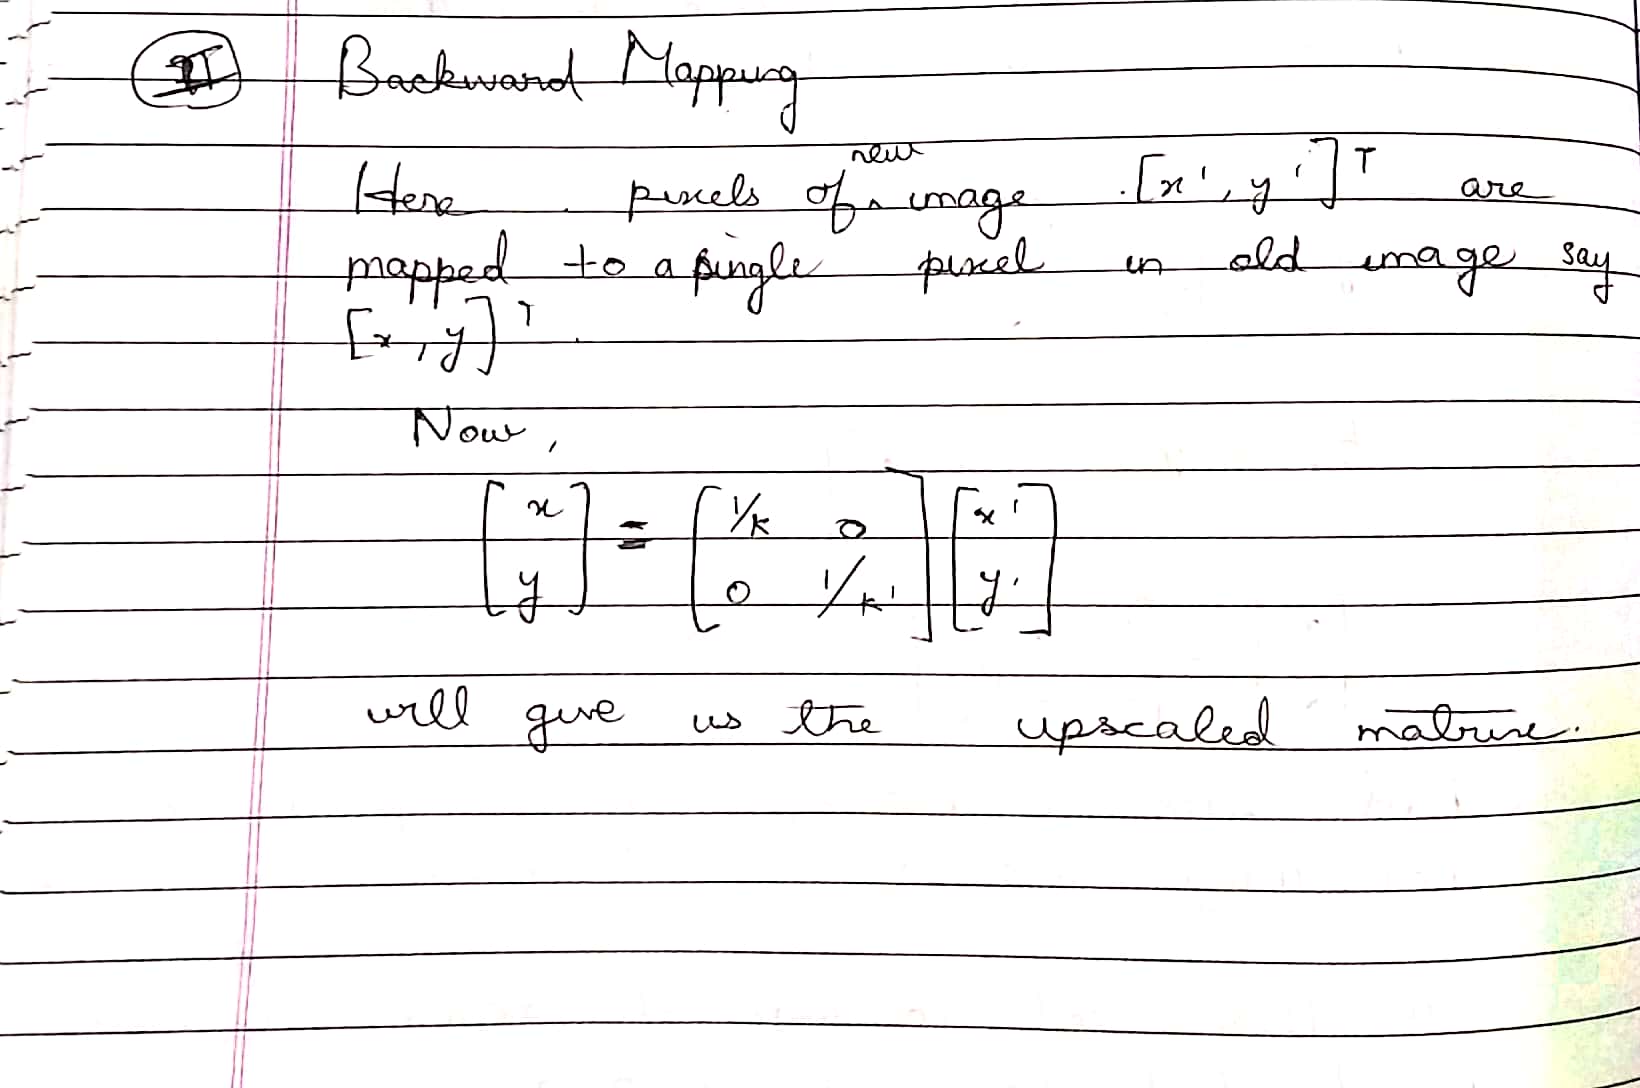 II Backward Mapping
Here pixels of new image [x', y']ᵀ are
mapped to a single pixel in old image say
[x, y]ᵀ.
Now,
[x y] = [1/K 0 0 1/K'] [x' y']
will give us the upscaled matrix.